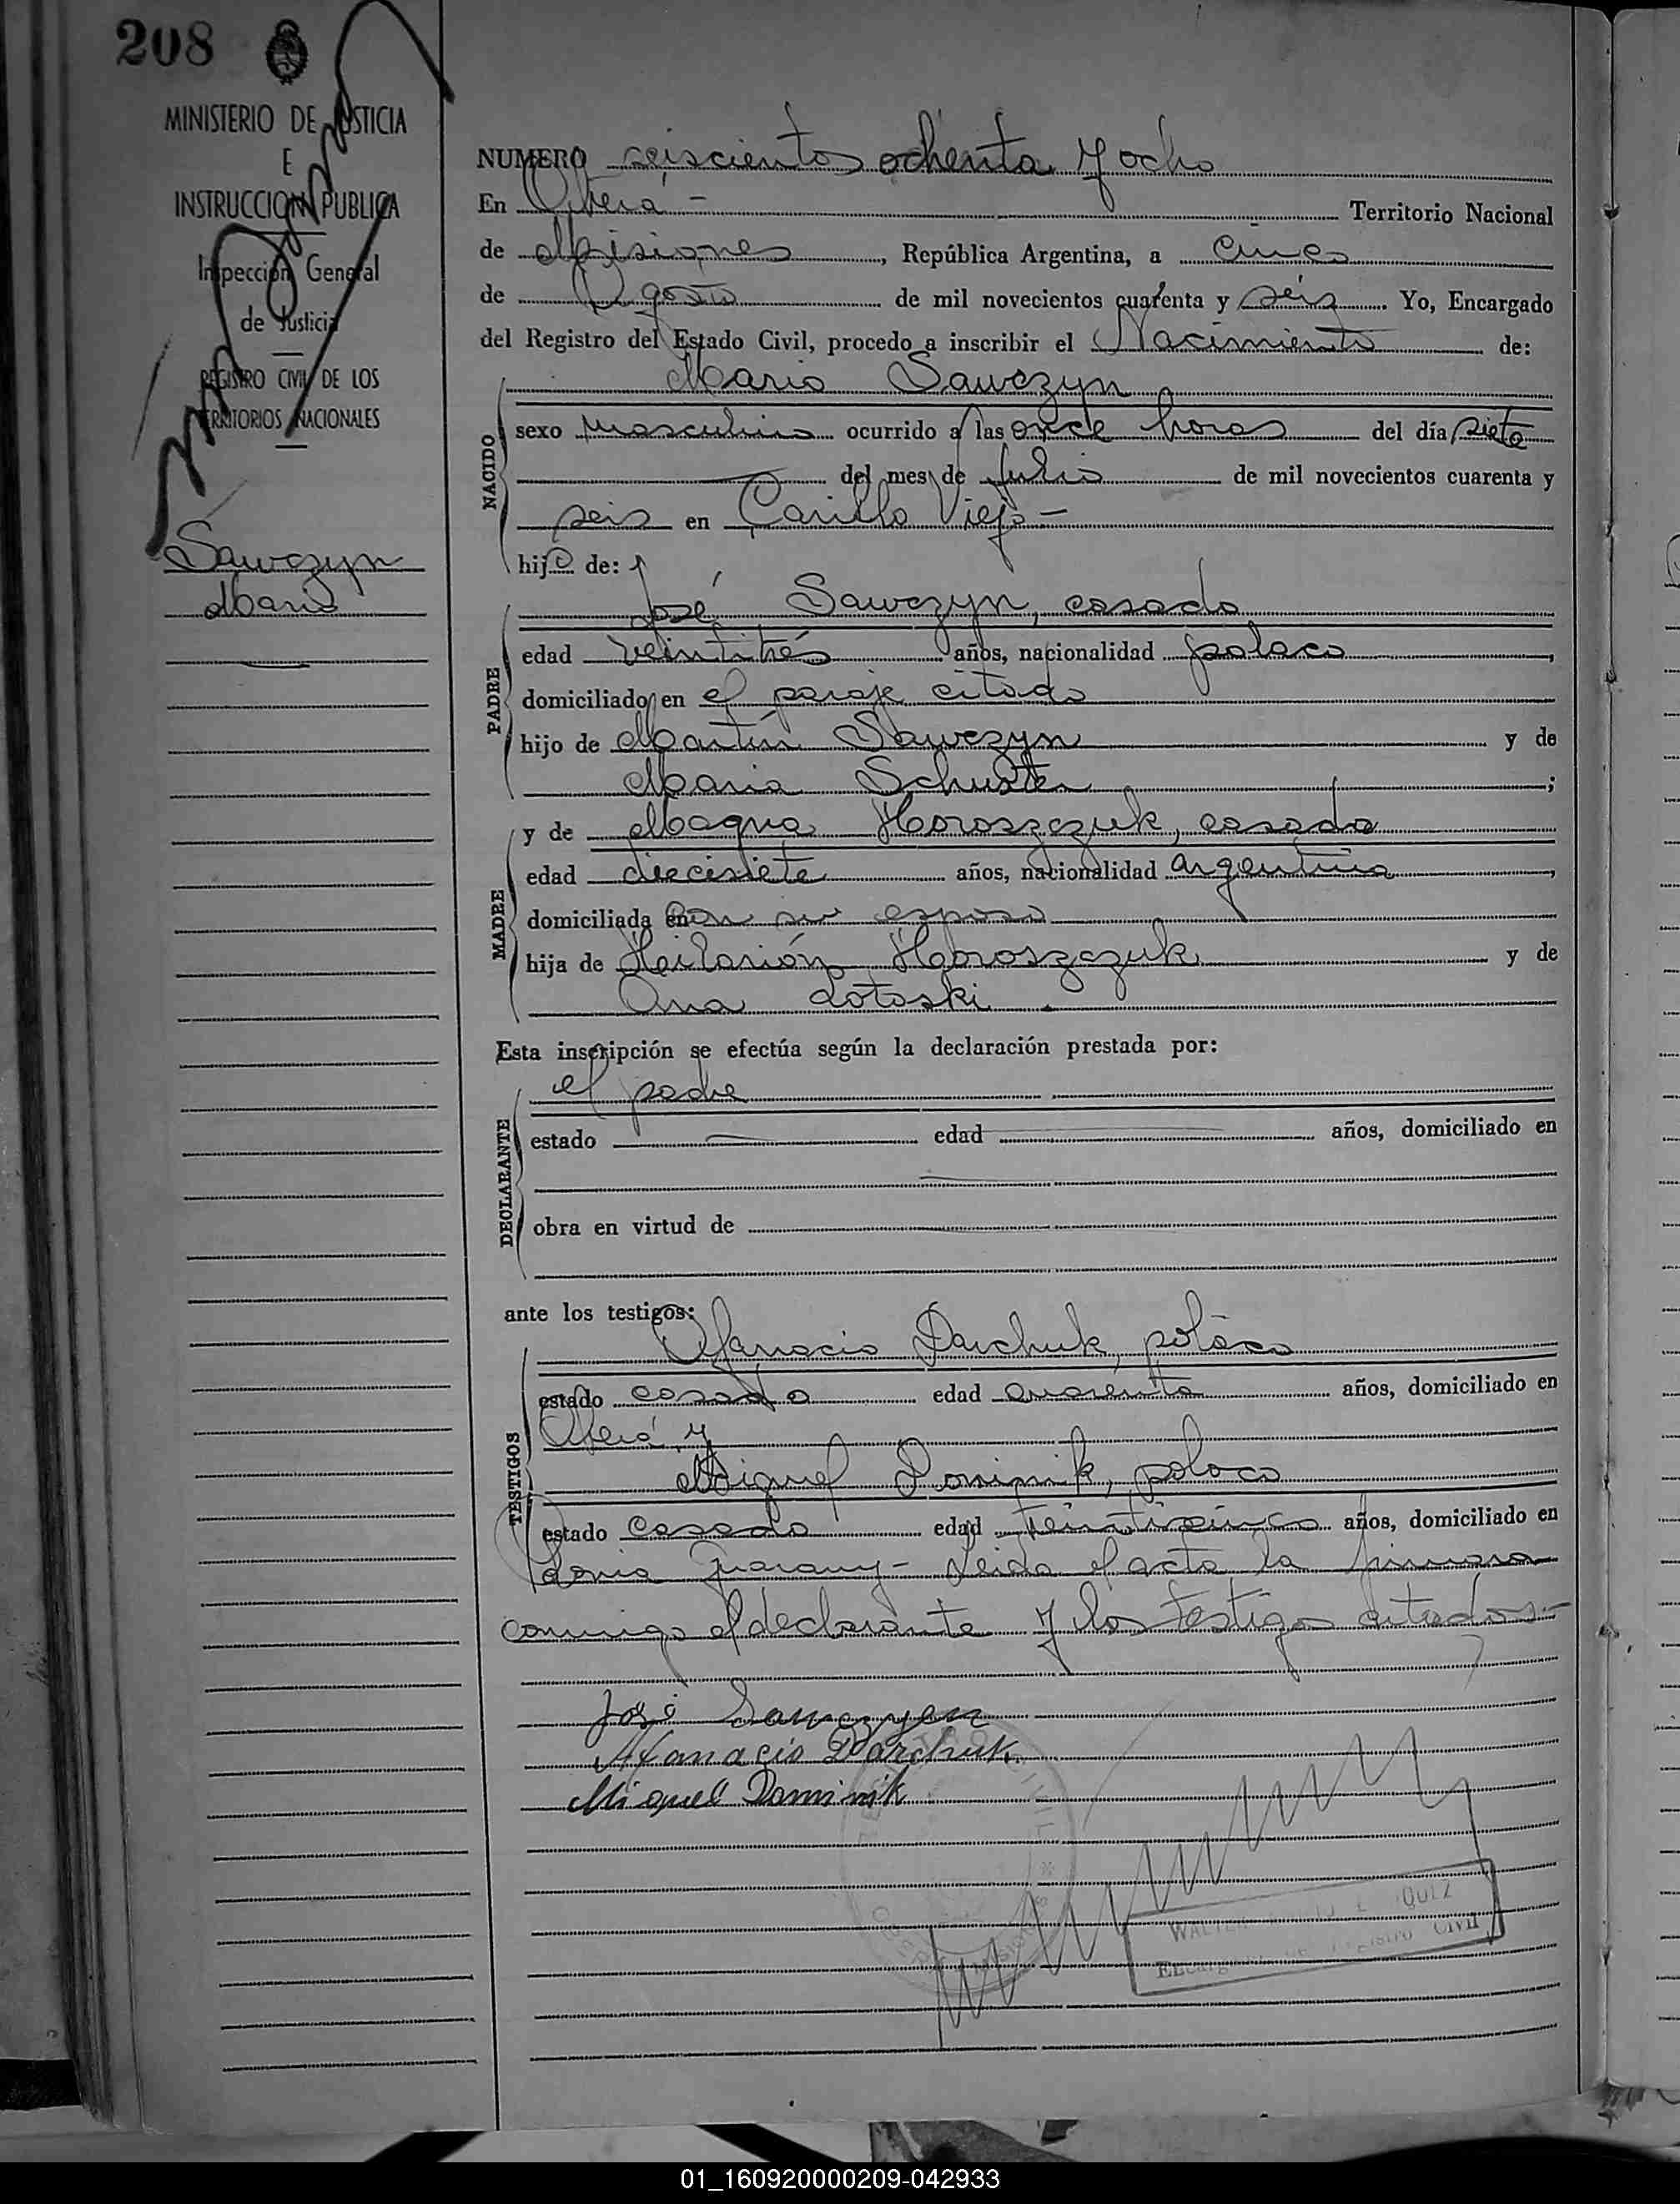 208
MINISTERIO DE JUSTICIA
E
INSTRUCCION PUBLICA
Inspección General
de Justicia
REGISTRO CIVIL DE LOS
TERRITORIOS NACIONALES
Sawczyn
Mario
NUMERO seiscientos ochenta y ocho
En Oberá - Territorio Nacional
de Misiones, República Argentina, a cinco
de Agosto de mil novecientos cuarenta y seis. Yo, Encargado
del Registro del Estado Civil, procedo a inscribir el Nacimiento de:
Mario Sawczyn
NACIDO
sexo masculino ocurrido a las once horas del día siete
del mes de Julio de mil novecientos cuarenta y
seis en Cerillo Viejo -
hijo de:
PADRE
José Sawczyn, casado
edad veintitrés años, nacionalidad polaco,
domiciliado en el paraje citado
hijo de Martín Sawczyn y de
Maria Schuster;
MADRE
y de Magna Horoszczuk, casada
edad diecisiete años, nacionalidad argentina,
domiciliada en con su esposo
hija de Heilarión Horoszczuk y de
Ana Lotoski.
Esta inscripción se efectúa según la declaración prestada por:
DECLARANTE
el padre
estado edad años, domiciliado en
obra en virtud de
ante los testigos:
TESTIGOS
Afanacio Darchuk, polaco
estado casado edad cuarenta años, domiciliado en
Oberá y
Miguel Dominik, polaco
estado casado edad treinticinco años, domiciliado en
Guarany - Leida el acta la firmaron
conmigo el declarante y los testigos citados. -
José Sawczyen
Afanacio Darchuk
Miguel Dominik
WALTER
Encargado Registro Civil
01_160920000209-042933